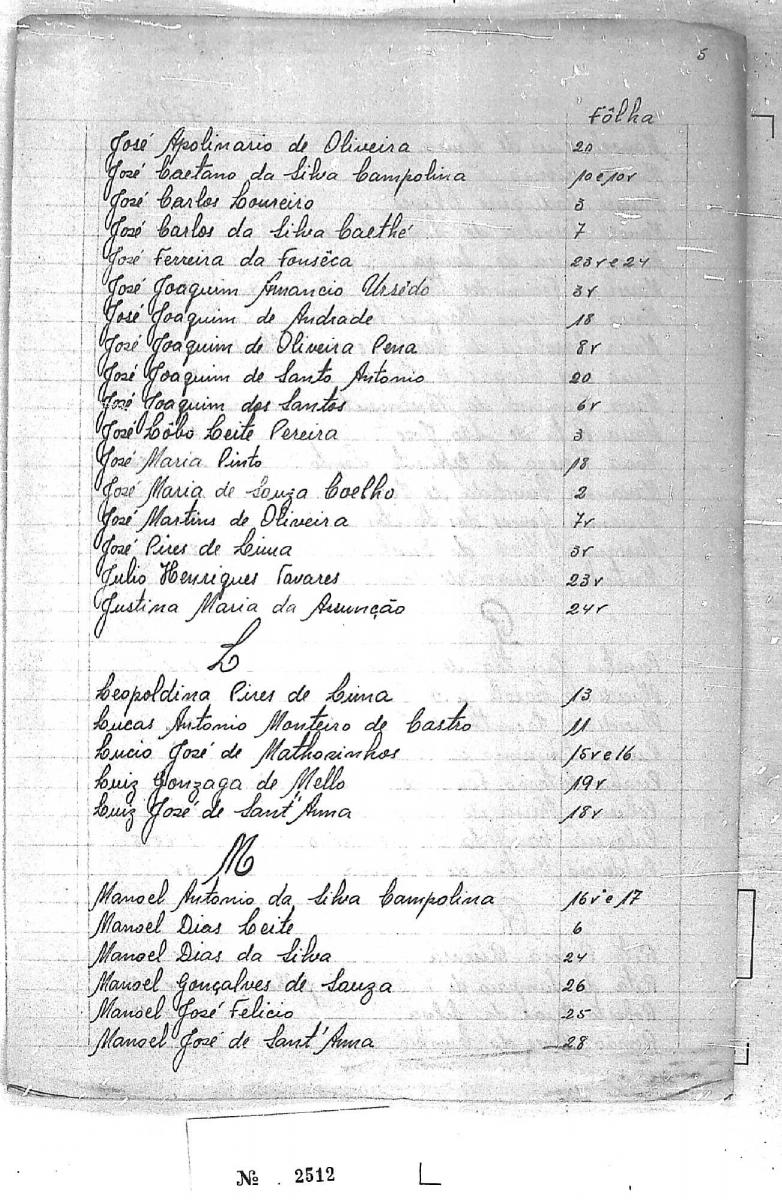 5
Fôlha
José Apolinario de Oliveira 20
José Caetano da Silva Campolina 10 e 10v
José Carlos Loureiro 3
José Carlos da Silva Caethé 7
José Ferreira da Fonsêca 23v e 24
José Joaquim Amancio Ursêdo 3v
José Joaquim de Andrade 18
José Joaquim de Oliveira Pena 8v
José Joaquim de Santo Antonio 20
José Joaquim dos Santos 6v
José Lôbo Leite Pereira 3
José Maria Pinto 18
José Maria de Souza Coelho 2
José Martins de Oliveira 7v
José Pires de Lima 3v
Julio Henriques Tavares 23v
Justina Maria da Assunção 24v
L
Leopoldina Pires de Lima 13
Lucas Antonio Monteiro de Castro 11
Lucio José de Mathosinhos 15v e 16
Luiz Gonzaga de Mello 19v
Luiz José de Sant'Anna 18v
M
Manoel Antonio da Silva Campolina 16v e 17
Manoel Dias Leite 6
Manoel Dias da Silva 24
Manoel Gonçalves de Souza 26
Manoel José Felicio 25
Manoel José de Sant'Anna 28
Nº 2512